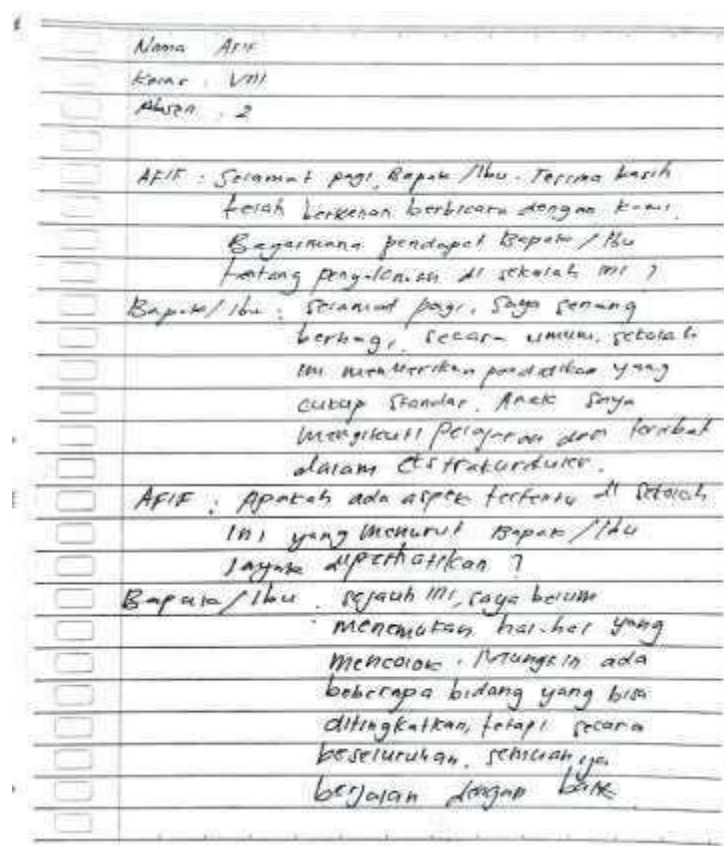 Nama Afif
Kelas : VIII
Absen : 2
AFIF : Selamat pagi, Bapak/Ibu. Terima kasih
telah berkenan berbicara dengan kami.
Bagaimana pendapat Bapak/Ibu
tentang pengalaman di sekolah ini ?
Bapak/Ibu : Selamat pagi, saya senang
berbagi, secara umum, sekolah
ini memberikan pendidikan yang
cukup standar. Anak saya
mengikuti pelajaran dan terlibat
dalam
AFIF : Apakah ada aspek tertentu di sekolah
ini yang menurut Bapak/Ibu
layak diperhatikan ?
Bapak/Ibu : sejauh ini, saya belum
menemukan hal-hal yang
mencolok. Mungkin ada
beberapa bidang yang bisa
ditingkatkan, tetapi secara
keseluruhan, semuanya
berjalan dengan baik